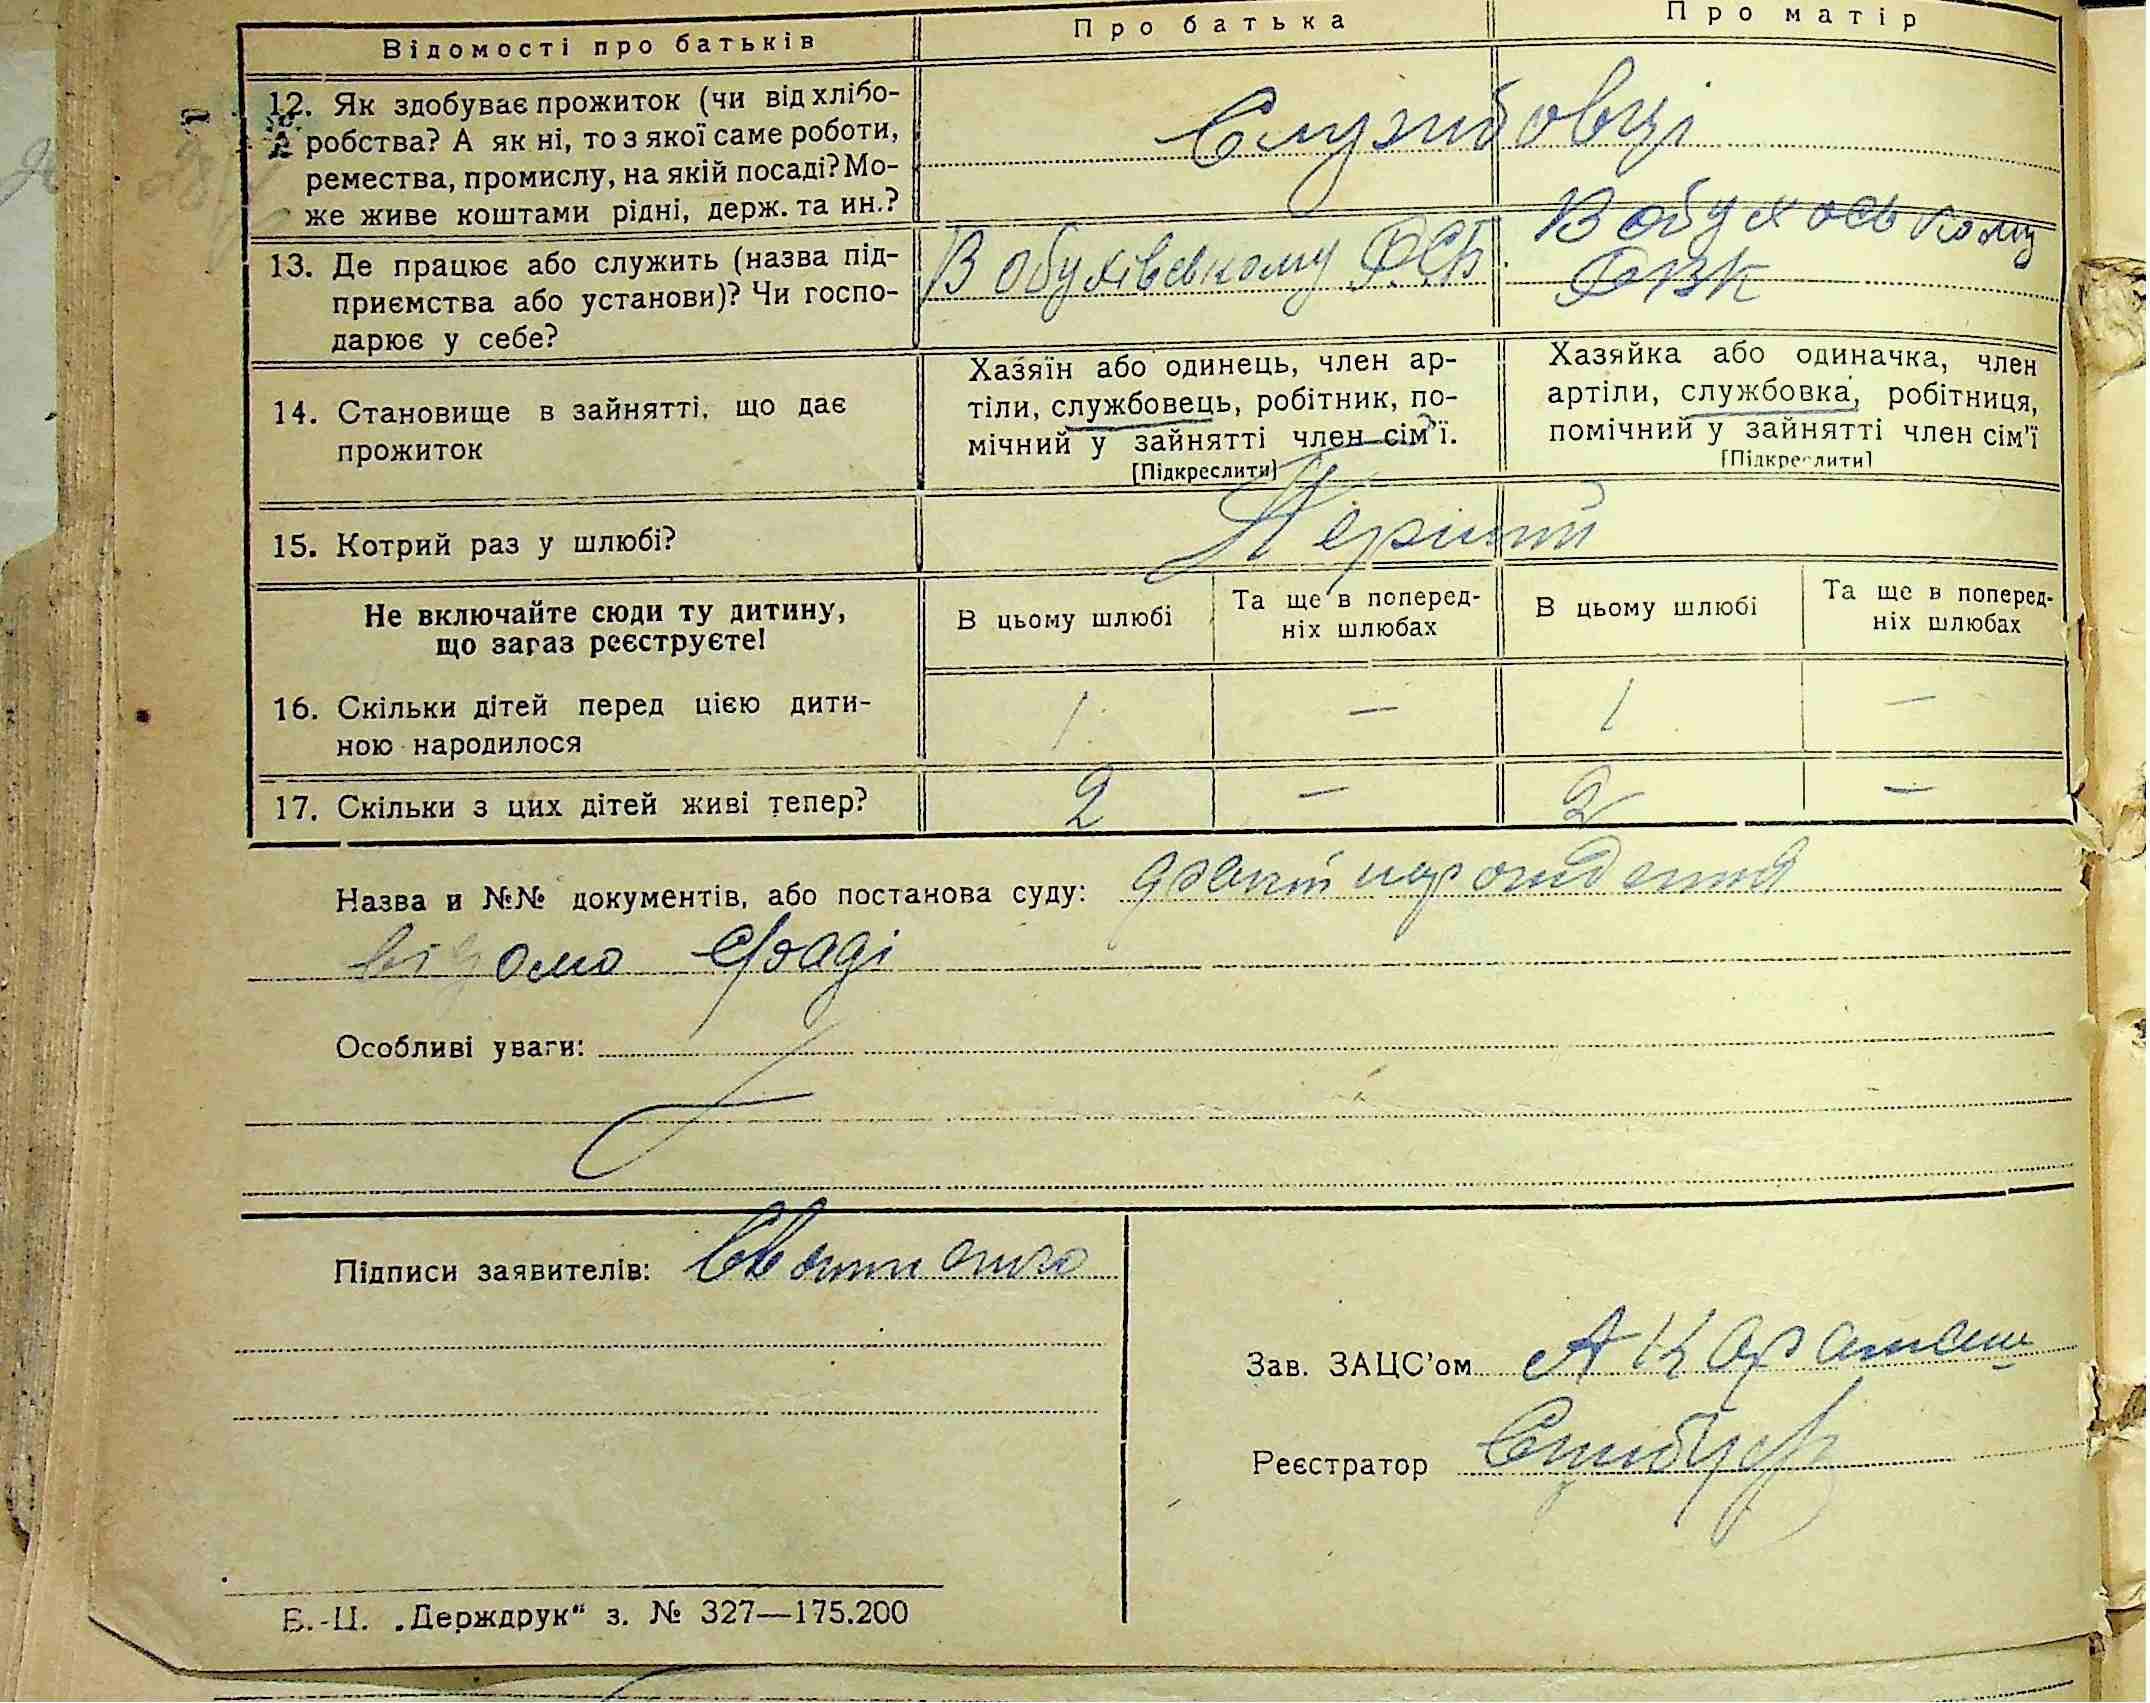 Відомості про батьків Про батька Про матір
12. Як здобуває прожиток (чи від хлібо-
робства? А як ні, то з якої саме роботи,
ремества, промислу, на якій посаді? Мо-
же живе коштами рідні, держ. та ин.?
Службовці
13. Де працює або служить (назва під-
приємства або установи)? Чи госпо-
дарює у себе?
В Обухівському
В Обухоському
РВК
14. Становище в зайнятті, що дає
прожиток
Хазяїн або одинець, член ар-
тіли, службовець, робітник, по-
мічний у зайнятті член сім'ї.
[Підкреслити]
Хазяйка або одиначка, член
артіли, службовка, робітниця,
помічний у зайнятті член сім'ї
[Підкреслити]
15. Котрий раз у шлюбі?
Перший
Не включайте сюди ту дитину,
що зараз реєструєте!
В цьому шлюбі
Та ще в поперед-
ніх шлюбах
В цьому шлюбі
Та ще в поперед-
ніх шлюбах
16. Скільки дітей перед цією дити-
ною народилося
1 — 1 —
17. Скільки з цих дітей живі тепер? 2 — 2 —
Назва и №№ документів, або постанова суду: факт народження
відомо
Особливі уваги:
Підписи заявителів:
Зав. ЗАЦС'ом
Реєстратор
Б.-Ц. „Держдрук" з. № 327—175.200